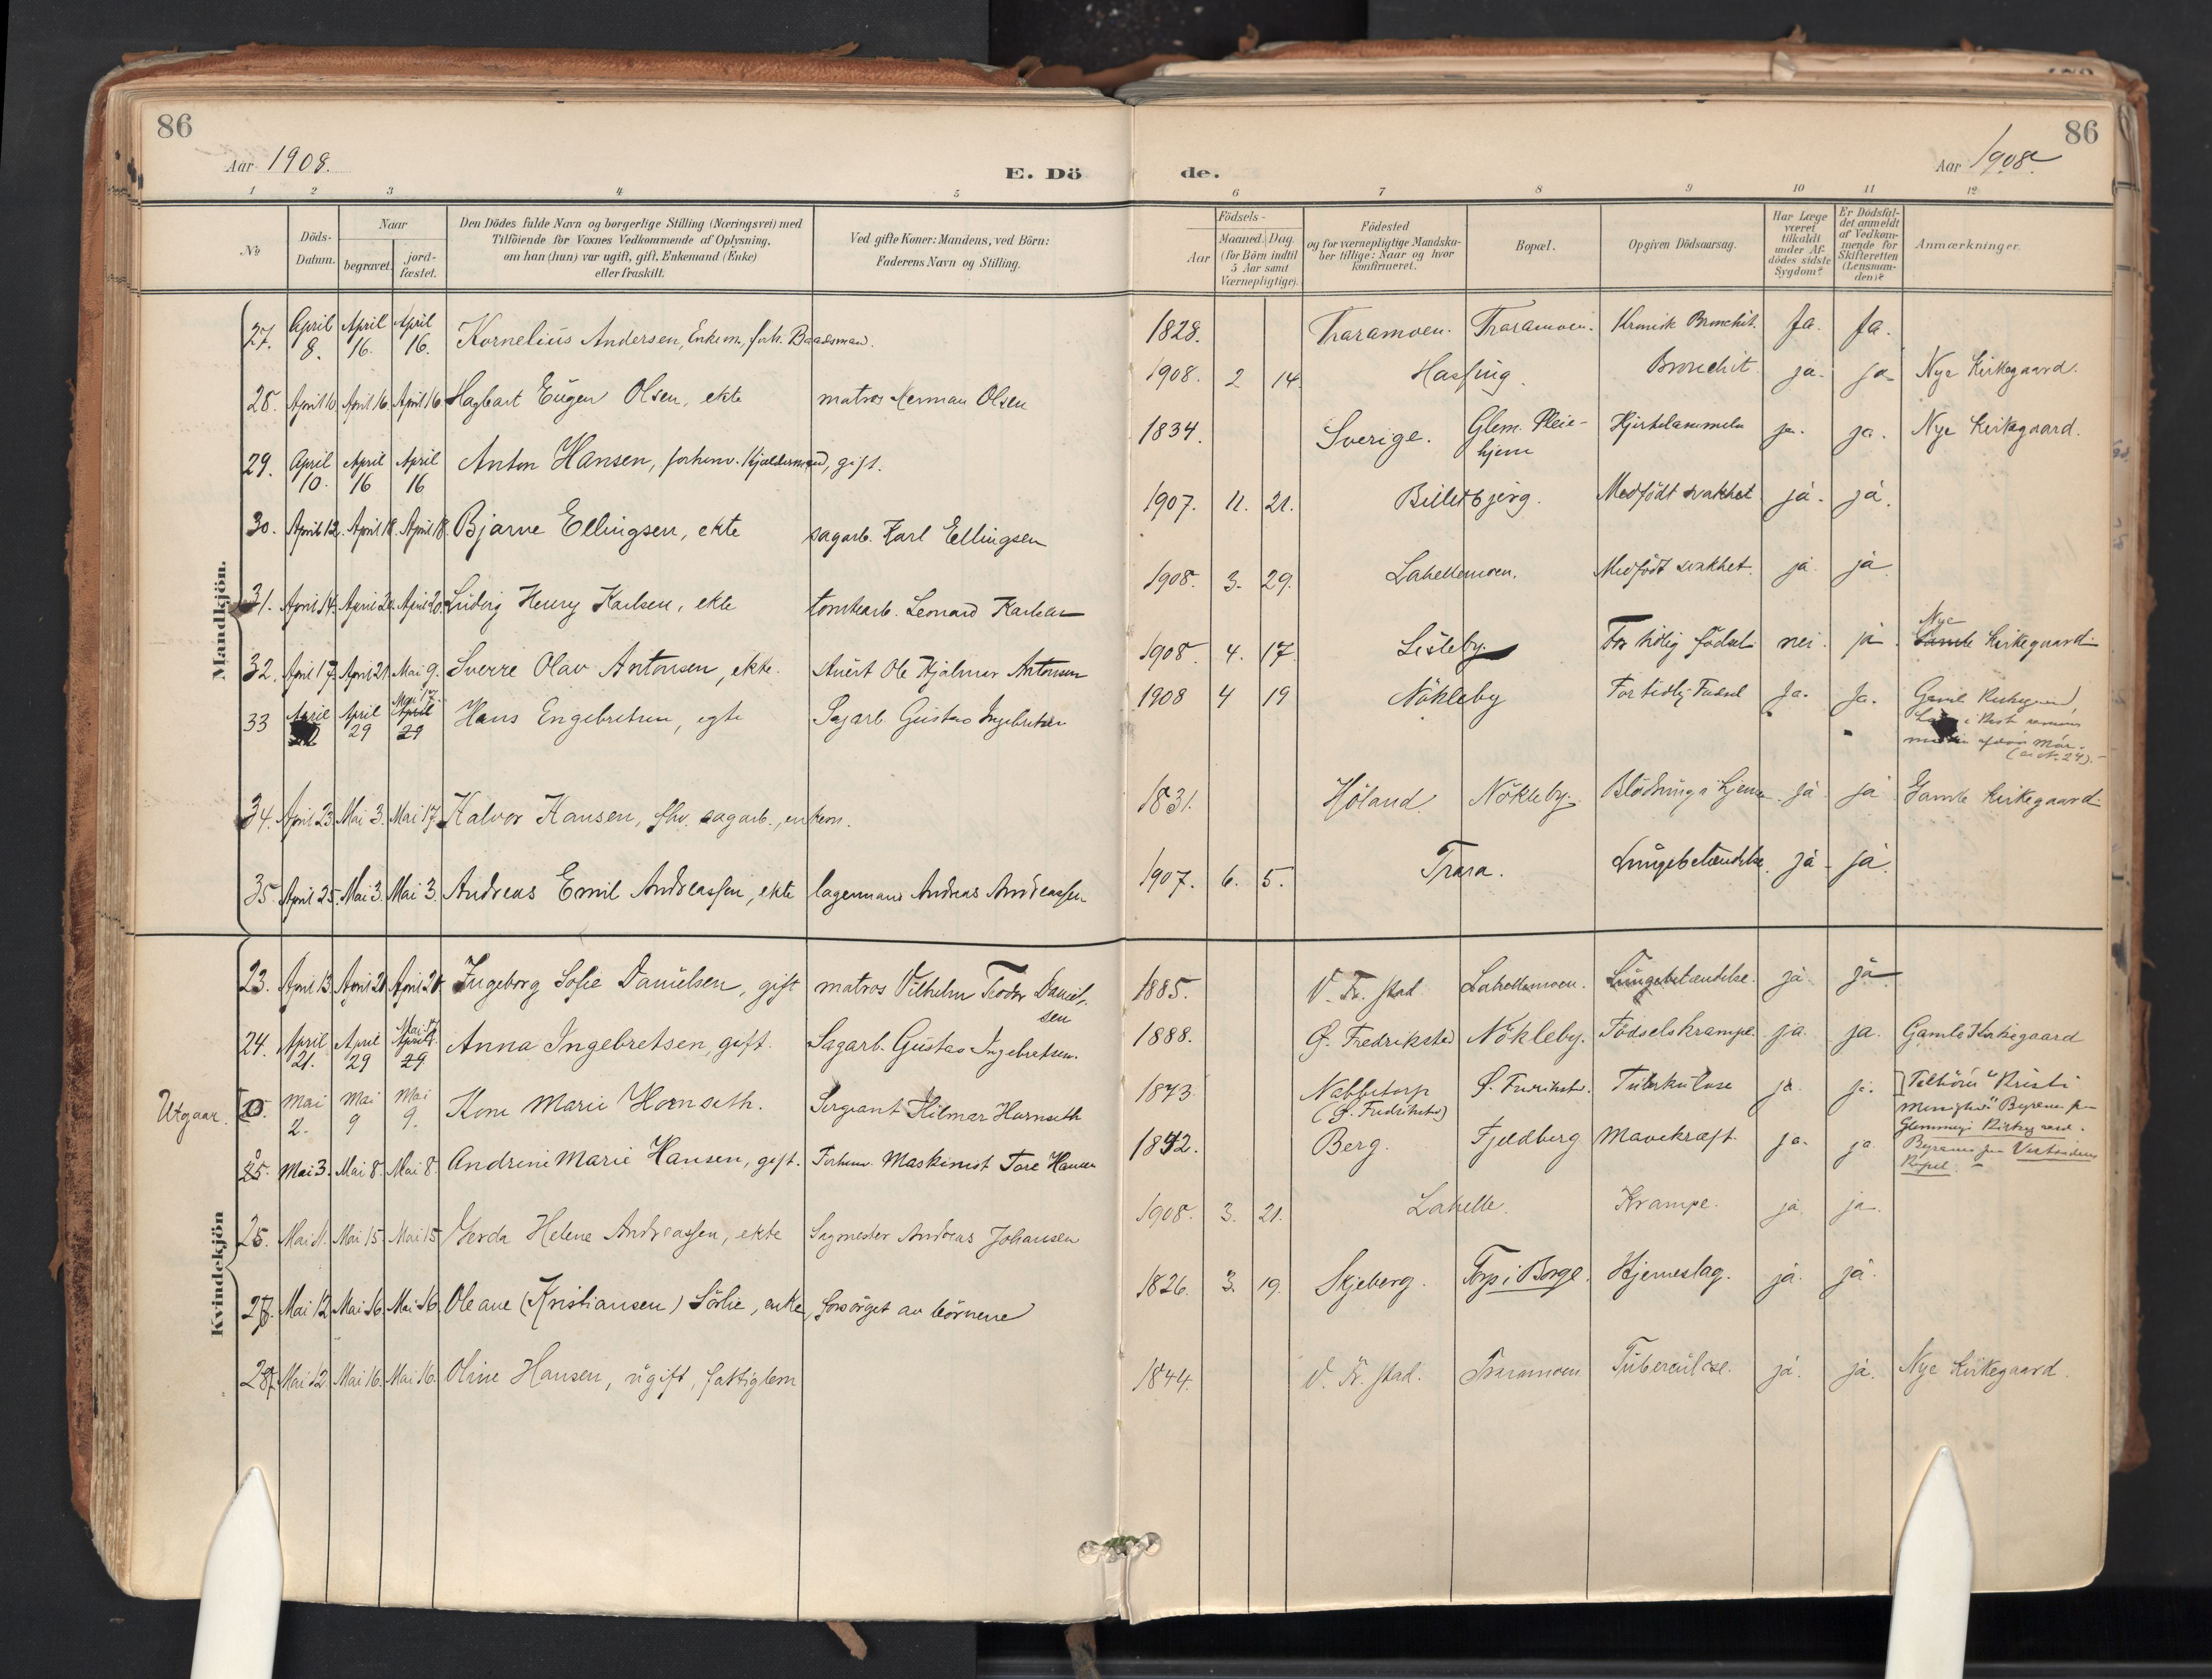 86
86
Aar 1908.
E. Dö
de.
Aar 1908
1 2 3 4 5 6 7 8 9 10 11 12
№
Döds-Datum.
Naar
begravet.
jord-fæstet.
Den Dödes fulde Navn og borgerlige Stilling (Næringsvei) med
Tilföiende for Voxnes Vedkommende af Oplysning,
om han (hun) var ugift, gift, Enkemand (Enke)
eller fraskilt.
Ved gifte Koner: Mandens, ved Börn:
Faderens Navn og Stilling.
Födsels-
Aar
Maaned. Dag
(for Börn indtil
5 Aar samt
Værnepligtige).
Födested
og for værnepligtige Mandska-
ber tillige: Naar og hvor
konfirmeret.
Bopæl.
Opgiven Dödsaarsag.
Har Læge
været
tilkaldt
under Af-
dödes sidste
Sygdom?
Er Dödsfal-
det anmeldt
af Vedkom-
mende for
Skifteretten
(Lensman-
den)?
Anmærkninger.
Mandkjön.
27. April 8. April 16. April 16. Kornelius Andersen, Enkem., forh. Baadsmand. 1828. Traramoen. Traramoen. Kronisk Bronchit. Ja. Ja.
28. April 10 April 16 April 16 Hagbart Eugen Olsen, ekte matros Herman Olsen 1908. 2 14 Hassing. Bronchit. ja. ja Nye Kirkegaard.
29. April 10. April 16 April 16 Anton Hansen, forhenv. Kjældermand, gift. 1834. Sverige. Glem. Pleie-hjem Hjertelammelse ja. ja. Nye Kirkegaard.
30. April 12. April 18. April 18. Bjarne Ellingsen, ekte sagarb. Karl Ellingsen 1907. 11. 21. Billetbjerg. Medfödt svakhet ja. ja.
31. April 14. April 20. April 20. Ludvig Henry Karlsen, ekte tomtearb. Leonard Karlsen 1908. 3. 29. Lahellemoen. Medfödt svakhet. ja. ja
32. April 17. April 21. Mai 9. Sverre Olav Antonsen, ekte. Ole Hjalmar Antonsen 1908. 4. 17. Lisleby. For tidlig födsel nei. ja Nye Gamle Kirkegaard.
33 April April 29 Mai 17. April 29 Hans Engebretsen, egte Sagarb. Gustav Ingebretsen 1908 4 19 Nökleby For tidlig Födsel Ja. Ja. Gamle Kirkegaard,
i Kiste sammen
(se № 24).
34. April 23. Mai 3. Mai 17 Halvor Hansen, fhv. sagarb., enkem. 1831. Höland Nökleby. Blödning i hjernen ja. ja Gamle kirkegaard.
35. April 25. Mai 3. Mai 3. Andreas Emil Andreassen, ekte lagermand Andreas Andreassen 1907. 6. 5. Trara. Lungebetændelse. ja. ja.
Kvindekjön
23. April 13 April 21 April 21. Ingeborg Sofie Danielsen, gift matros Vilhelm Teodor Danielsen 1885. V. Fr.stad Lahellemoen. Lungebetændelse. ja. ja
24. April 21. April 29 Mai 17 April 29 Anna Ingebretsen, gift. Sagarb. Gustav Ingebretsen. 1888. Ø. Fredrikstad Nökleby. Födselskrampe. ja. ja. Gamle Kirkegaard
Utgaar. Mai 2. Mai 9 Mai 9. Kone Marie Hornseth. Sergeant Hilmar Hornseth 1873. Nabbetorp (Ø. Fredrikstad) Ø. Fredrikstad. Tuberkulose ja. ja. Tilhörer "Kristi
Menighed" Begraven paa
Glemminge Kirkegaard.
25. Mai 3. Mai 8. Mai 8. Andrine Marie Hansen, gift. Forhenv. Maskinist Tore Hansen 1842. Berg. Fjeldberg Mavekræft. ja. ja. Begraves fra Vestsidens
Kapel.
25. Mai 11. Mai 15. Mai 15 Gerda Helene Andreassen, ekte Sagmester Andreas Johansen 1908. 3. 21. Lahelle. Krampe. ja ja.
27. Mai 12 Mai 16. Mai 16. Oleane (Kristiansen) Sörlie, enke, forsörget av börnene 1826. 3. 19. Skjeberg. Torp i Borge. Hjerneslag. ja. ja.
28. Mai 12. Mai 16. Mai 16. Oline Hansen, ugift, fattiglem 1844. V. Fr.stad. Traramoen Tuberculose. ja. ja. Nye Kirkegaard.